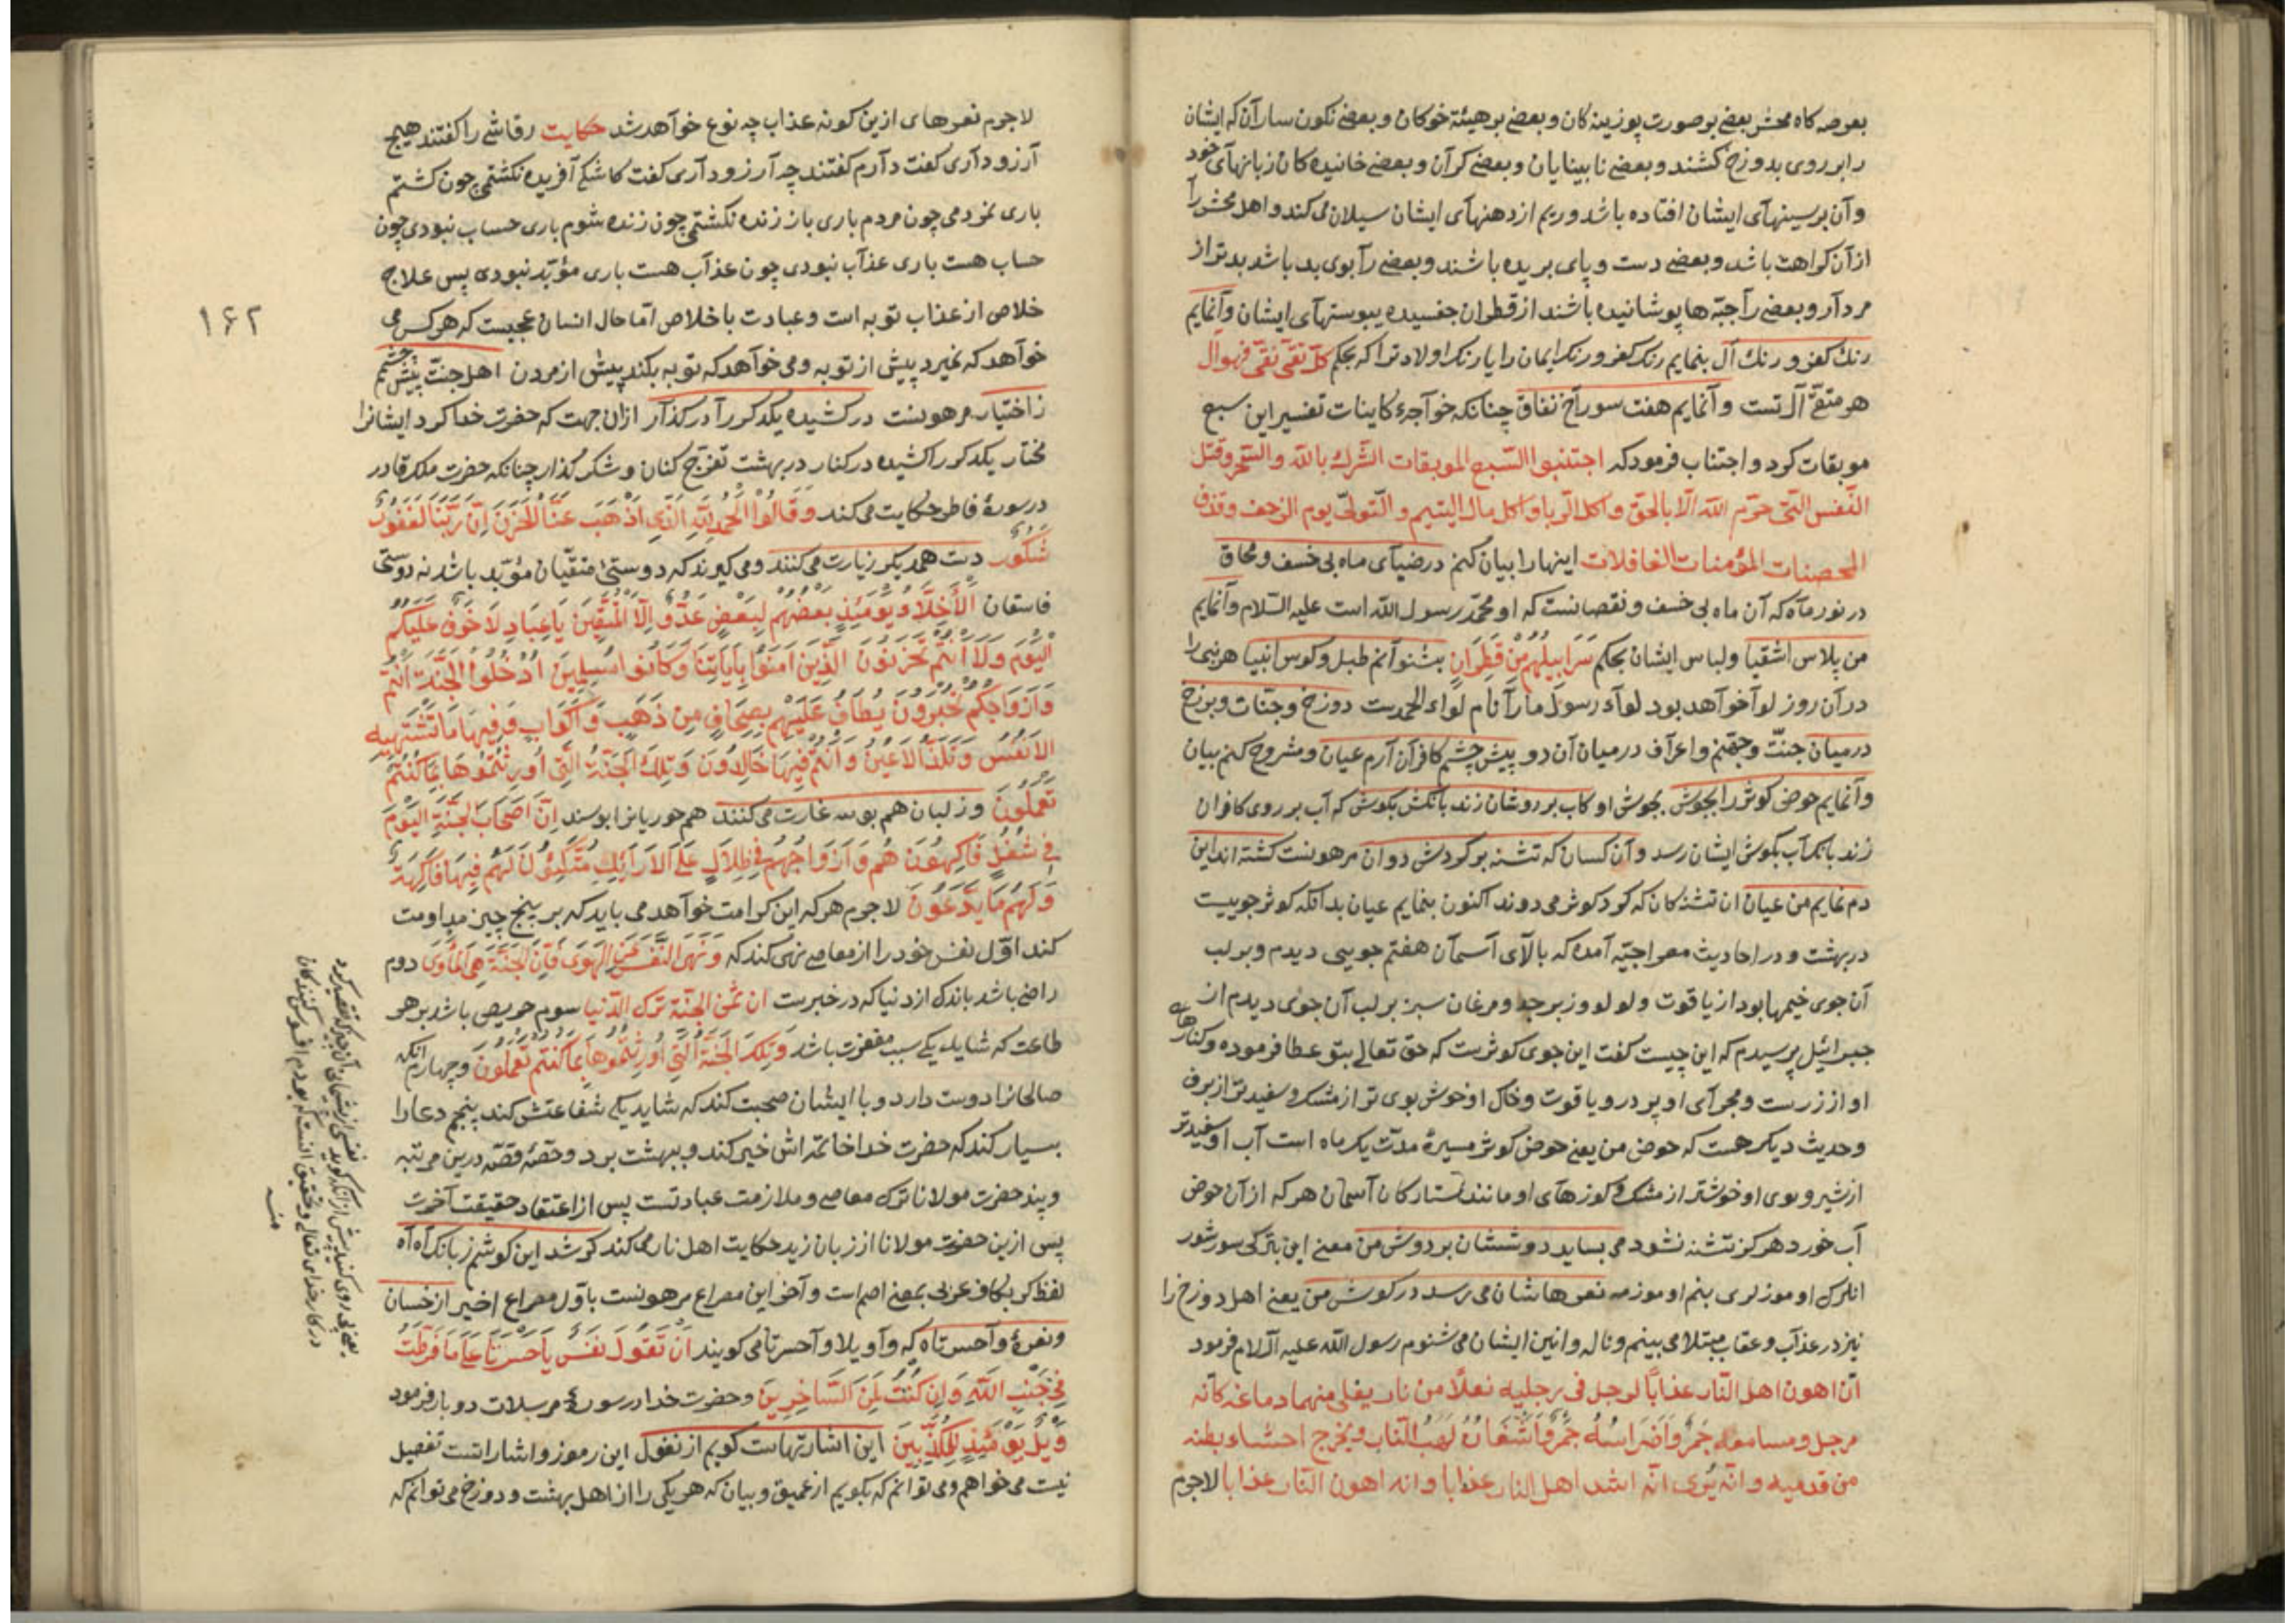 بعرصه کاه محشر بعضی بر صورت پوزینه کان و بعضی بر هیئة خوکان و بعضی نکون سار آن که ایشان
را بر روی بدوزخ کشند و بعضی نابینایان و بعضی کرآن و بعضی خائیده کان زبانهآی خود
و آن بر سینهآی ایشان افتاده باشد و ریم از دهنهآی ایشان سیلان می کند و اهل محشر را
از آن کراهت باشد و بعضی دست و پای بریده باشند و بعضی رآ بوی بد باشد بدتر از
مردآر و بعضی رآ جبّه ها پوشانیده باشند از قطران چفسیده بپوستهآی ایشان وآنمایم
رنك کفر و رنك آل بنمایم رنك کفر و رنك ایمان را یا رنك اولاد ترا که بحکم کلّ تقیّ نقیّ فهو آل
هر متقیّ آل تست وآنمایم هفت سورآخ نفاق چنانکه خوآجهٔ کاینات تفسیر این سبع
موبقات کرد و اجتناب فرمود که اجتنبوا السّبع الموبقات الشّرك بالله والسّحر وقتل
النّفس الّتی حرّم اللّه الّا بالحقّ واکل الرّبا واکل مال الیتیم و التّولّی یوم الزحف وقذف
المحصنات المؤمنات الغافلات اینها را بیان کنم در ضیآی ماه بی خسف و محاق
در نور مآه که آن ماه بی خسف و نقصانست که او محمّد رسول اللّه است علیه السّلام وآنمایم
من پلاس اشقیا و لباس ایشان بحکم سَرَابِیلُهُم مِّنْ قَطِرَانٍ بشنوآنم طبل و کوس انبیا هر نبی را
در آن روز لوآ خوآهد بود لوآء رسول ما رآ نام لوآء الحمدست دوزخ و جنّات و برزخ
درمیان جنّت و جهنّم و اعرآف درمیان آن دو پیش چشم کافرآن آرم عیان و مشروح کنم بیان
وآنمایم حوض کوثر را بجوش بجوش او کاب بر روشان زند بانکش بکوش که آب بر روی کافران
زند بانك آب بکوش ایشان رسد و آن کسان که تشنه بر کردش دوان مرهونست کشته اند این
دم نمایم من عیان ان تشنه کان که کرد کوثر می دوند اکنون بنمایم عیان بدآنکه کوثر جوییست
در بهشت و در احادیث معراجیّه آمده که بالآی آسمآن هفتم جویی دیدم و بر لب
آن جوی خیمها بود از یاقوت و لولو و زبرجد و مرغان سبز بر لب آن جوی دیدم از
جبرائیل پرسیدم که این چیست کفت این جوی کوثرست که حقّ تعالی بتو عطا فرموده و کنارهای
او از زرست و مجرآی او پر در و یاقوت و خاك او خوش بوی تر از مشك و سفیدتر از برف
و حدیث دیکر هست که حوض من یعنی حوض کوثر مسیرهٔ مدّت یك ماه است آب او سفیدتر
از شیر و بوی او خوشتر از مشك و کوزهآی او مانند ستارکان آسمآن هر که از آن حوض
آب خورد هرکز تشنه نشود می بساید دوششان بر دوش من معنی این بترکی سورشور
انلرك اوموزلری بنم اوموزمه نعرهاشان می رسد در کوش من یعنی اهل دوزخ را
نیز در عذآب و عقاب مبتلا می بینم و ناله و انین ایشان می شنوم رسول اللّه علیه السّلام فرمود
انّ اهون اهل النّار عذاباً لرجل فی رجلیه نعلاً من نار یغلی منهما دماغه کانّه
مرجل و مسامعه جَمْرٌ وَاَضْرَاسُهُ جَمْرٌ وَاَشْفَارُهُ لَهَبُ النّار ویخرج احشاء بطنه
من قدمیه وانّه یُری انّه اشد اهل النار عذابا وانه اهون النّار عذابا لاجرم
لاجرم نعرهای ازین کونه عذاب چه نوع خوآهد شد حکایت رقاشی را کفتند هیچ
آرزو دآری کفت دآرم کفتند چه آرزو دآری کفت کاشکی آفریده نکشتمی چون کشتم
باری نمردمی چون مردم باری باز زنده نکشتمی چون زنده شوم باری حساب نبودی چون
حساب هست باری عذآب نبودی چون عذآب هست باری مؤبّد نبودی پس علاج
خلاص از عذاب توبه است و عبادت با خلاص امّا حال انسان عجبیست که هر کس می
خوآهد که نمیرد پیش از توبه و می خوآهد که توبه بکند پیش از مردن اهل جنّت پیش چشمم
ز اختیار مرهونست در کشیده یکدکر رآ در کنار ازان جهت که حضرت خدا کرد ایشانرا
مختار یکدکر را کشیده در کنار در بهشت تفرّج کنان و شکر گذار چنانکه حضرت ملك قادر
در سورهٔ فاطر حکایت می کند وَقَالُوا الْحَمْدُ لِلّٰهِ الَّذِی اَذْهَبَ عَنَّا الْحَزَنَ اِنَّ رَبَّنَا لَغَفُورٌ
شَکُورٌ دست همدیکر زیارت می کنند و می کیرند که دوستیٔ متقیّان مؤبّد باشد نه دوستی
فاسقان اَلْاَخِلَّاءُ یَوْمَئِذٍ بَعْضُهُمْ لِبَعْضٍ عَدُوٌّ اِلَّا الْمُتَّقِینَ یَاعِبَادِ لَا خَوْفٌ عَلَیْکُمُ
الْیَوْمَ وَلَا اَنْتُمْ تَحْزَنُونَ الَّذِینَ اٰمَنُوا بِاٰیَاتِنَا وَکَانُوا مُسْلِمِینَ اُدْخُلُوا الْجَنَّةَ اَنْتُمْ
وَاَزْوَاجُکُمْ تُحْبَرُونَ یُطَافُ عَلَیْهِمْ بِصِحَافٍ مِنْ ذَهَبٍ وَاَکْوَابٍ وَفِیهَا مَا تَشْتَهِیهِ
الْاَنْفُسُ وَتَلَذُّ الْاَعْیُنُ وَاَنْتُمْ فِیهَا خَالِدُونَ وَتِلْكَ الْجَنَّةُ الَّتِی اُورِثْتُمُوهَا بِمَا کُنْتُمْ
تَعْمَلُونَ وز لبان هم بوسه غارت می کنند هم حوریانرا بوسند اِنَّ اَصْحَابَ الْجَنَّةِ الْیَوْمَ
فِی شُغُلٍ فَاکِهُونَ هُمْ وَاَزْوَاجُهُمْ فِی ظِلَالٍ عَلَی الْاَرَائِكِ مُتَّکِئُونَ لَهُمْ فِیهَا فَاکِهَةٌ
وَلَهُمْ مَا یَدَّعُونَ لاجرم هر که این کرامت خوآهد می باید که بر پنج چیز مداومت
کند اوّل نفس خود را از معاصی نهی کند که وَنَهَی النَّفْسَ عَنِ الْهَوَی فَاِنَّ الْجَنَّةَ هِیَ الْمَأْوَی دوم
راضی باشد باندك از دنیا که در خبرست ان ثمن الجنّة ترك الدّنیا سوم حریص باشد بر هر
طاعت که شاید یکی سبب مغفرت باشد وَتِلْكَ الْجَنَّةُ الَّتِی اُورِثْتُمُوهَا بِمَا کُنْتُمْ تَعْمَلُونَ و چهارم آنکه
صالحانرا دوست دارد و با ایشان صحبت کند که شاید یکی شفاعتش کند پنجم دعا را
بسیار کند که حضرت خدا خاتمه اش خیر کند و ببهشت برد و حصّهٔ قصّه درین مرتبه
و پند حضرت مولانا ترك معاصی و ملازمت عبادتست پس از اعتقاد حقیقت آخرت
پس ازین حضرت مولانا از زبان زید حکایت اهل نار می کند کر شد این کوشم ز بانك آه آه
لفظ کر بکاف عربی بمعنی اصم است و آخر این مصراع مرهونست باوّل مصراع اخیر از خسان
و نعرهٔ وآحسرتاه که وآویلا وآحسرتا می کویند اَنْ تَقُولَ نَفْسٌ یَاحَسْرَتَا عَلَی مَا فَرَّطْتُ
فِی جَنْبِ اللّٰهِ وَاِنْ کُنْتُ لَمِنَ السَّاخِرِینَ و حضرت خدا در سورهٔ مرسلات دو بار فرمود
وَیْلٌ یَوْمَئِذٍ لِلْمُکَذِّبِینَ این اشارتهاست کویم از نغول این رموز و اشاراتست تفصیل
نیست می خواهم و می توانم که بکویم از عمیق و بیان که هر یکی را از اهل بهشت و دوزخ می توانم که
۱۶۲
در کار خدای تعالی و تحقیق آنست که بودم افسوس کنندکان
منه